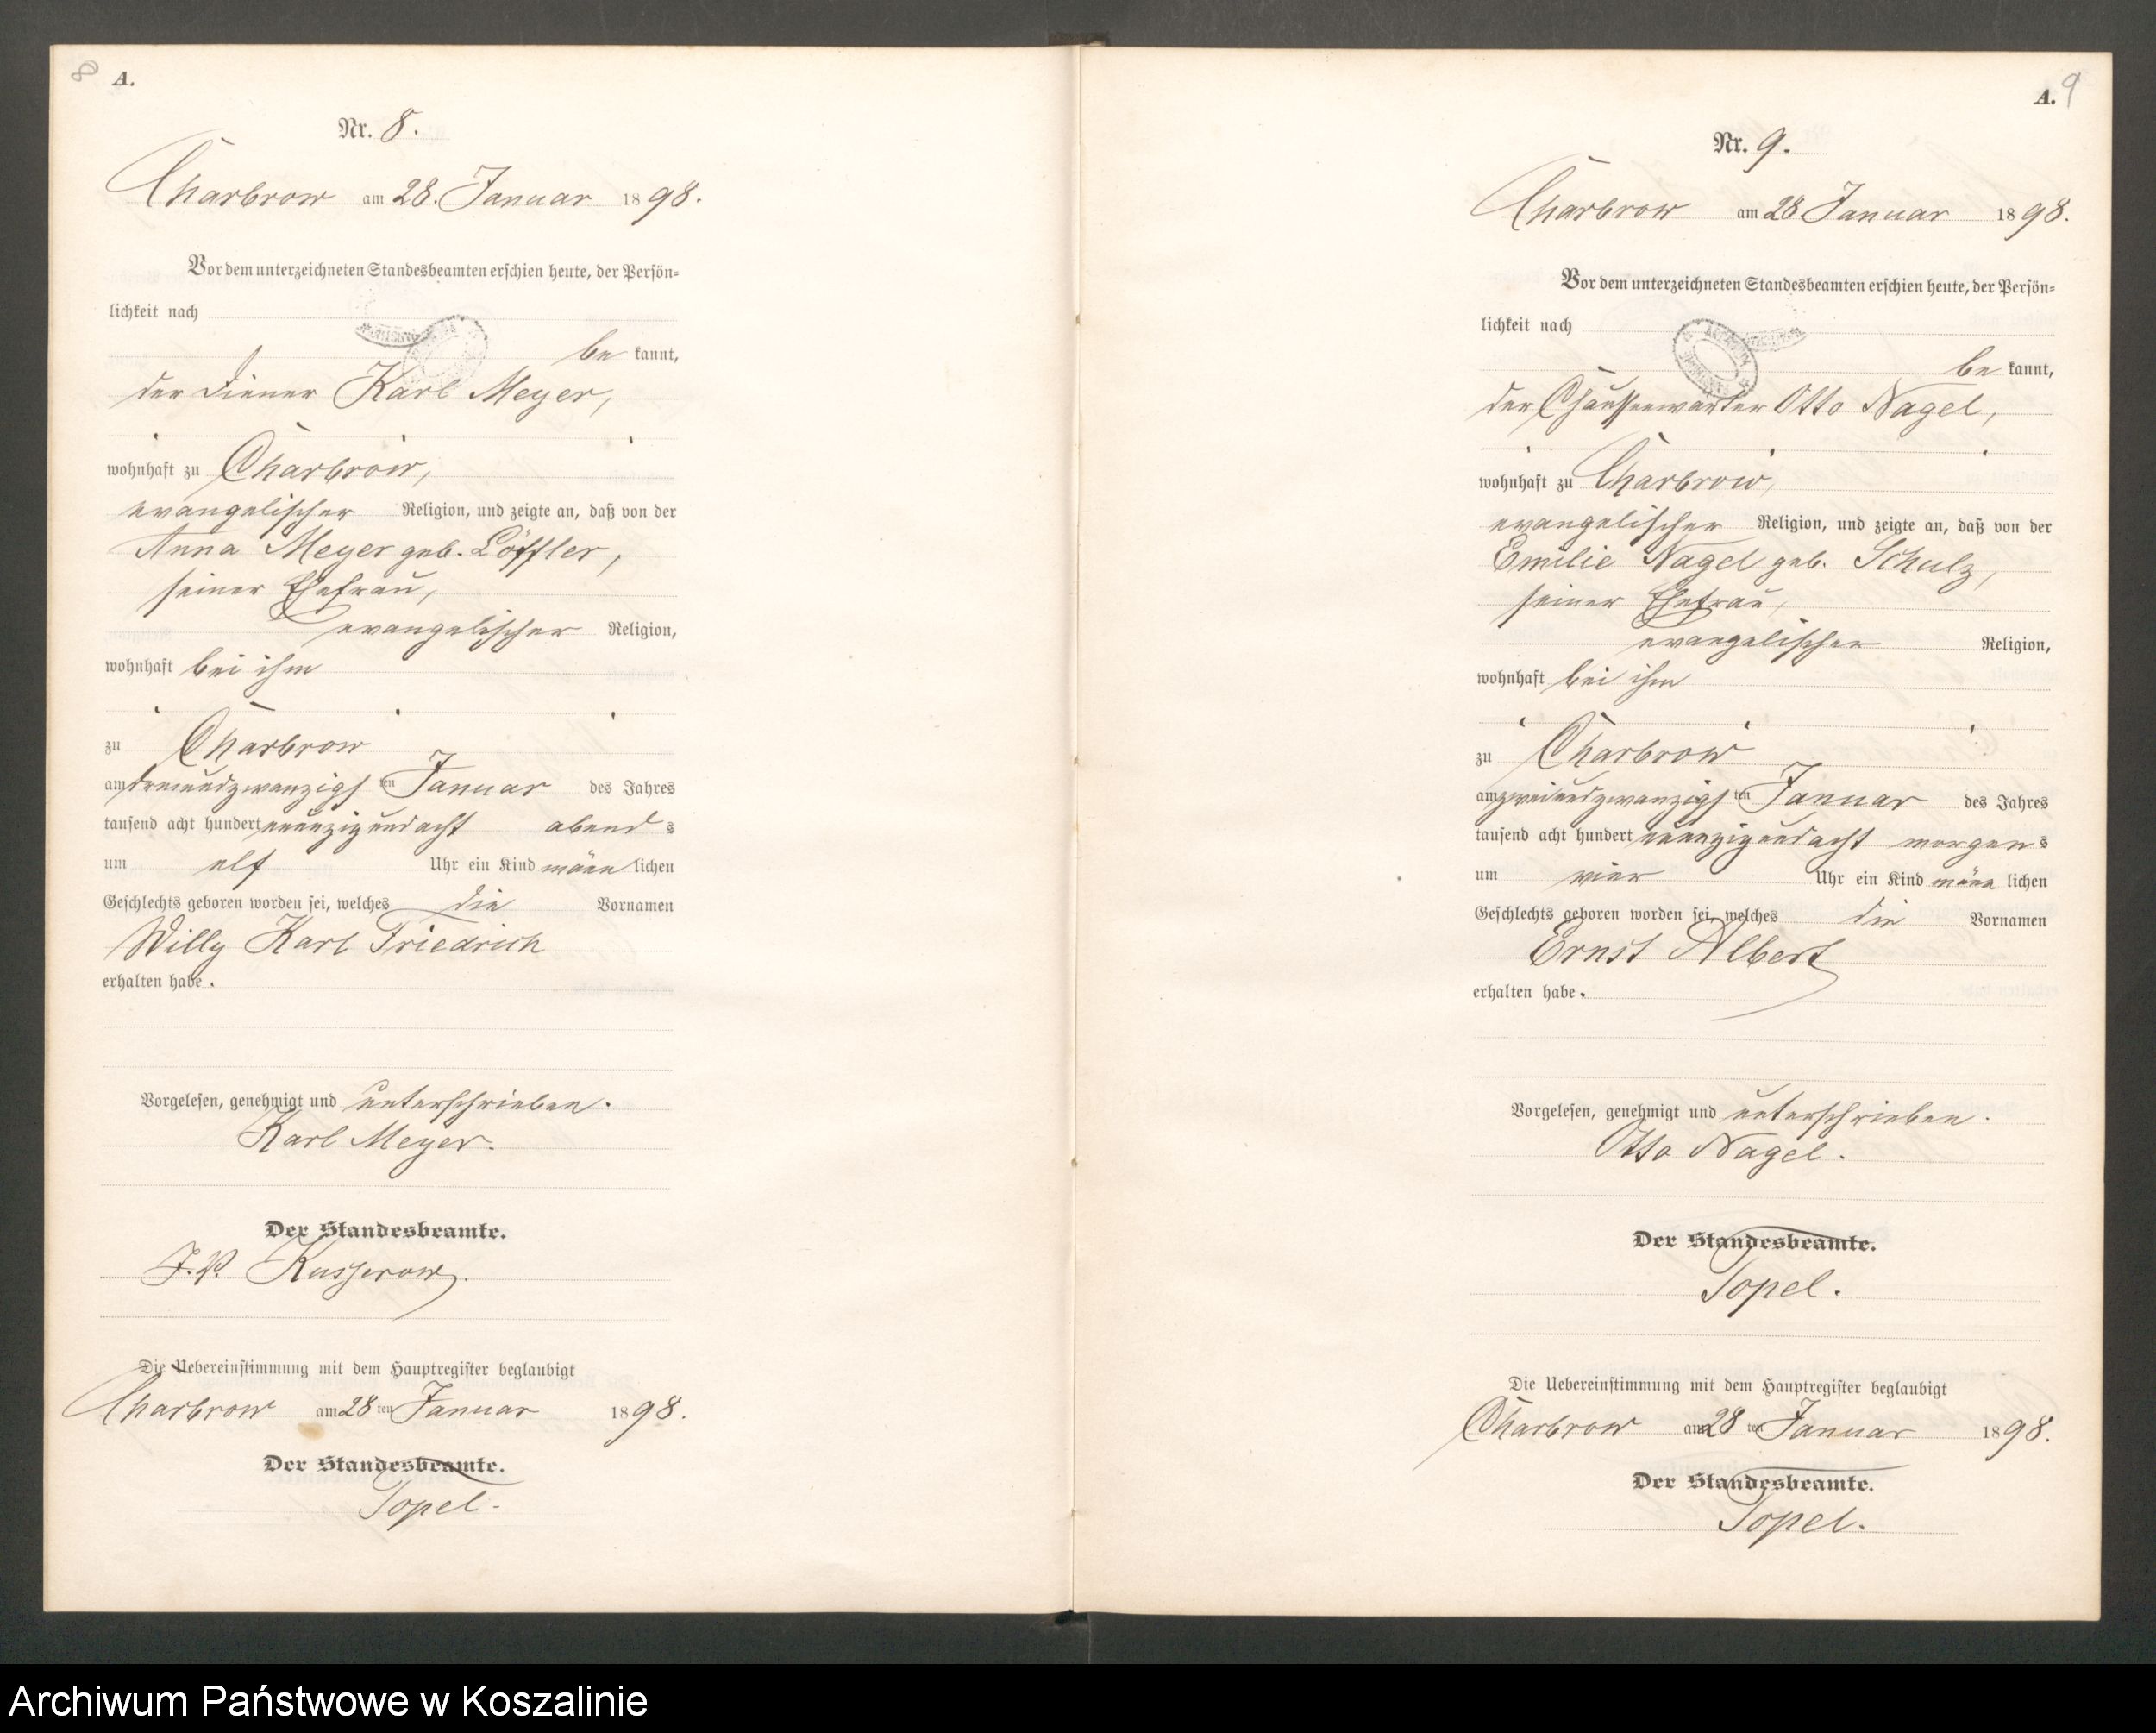 8 A.
Nr. 8.
Charbrow am 28. Januar 1898.
Vor dem unterzeichneten Standesbeamten erschien heute, der Persön-
lichkeit nach
be kannt,
der Diener Karl Meyer,
wohnhaft zu Charbrow,
evangelischer Religion, und zeigte an, daß von der
Anna Meyer geb. Löffler,
seiner Ehefrau,
evangelischer Religion,
wohnhaft bei ihm
zu Charbrow
am dreiundzwanzigsten Januar des Jahres
tausend acht hundert neunzig und acht abends
um elf Uhr ein Kind männlichen
Geschlechts geboren worden sei, welches die Vornamen
Willy Karl Friedrich
erhalten habe.
Vorgelesen, genehmigt und unterschrieben.
Karl Meyer.
Der Standesbeamte.
J. V. Kusserow.
Die Uebereinstimmung mit dem Hauptregister beglaubigt
Charbrow am 28ten Januar 1898.
Der Standesbeamte.
Topel.
A. 9
Nr. 9.
Charbrow am 28 Januar 1898.
Vor dem unterzeichneten Standesbeamten erschien heute, der Persön-
lichkeit nach
be kannt,
der Chausseewärter Otto Nagel,
wohnhaft zu Charbrow,
evangelischer Religion, und zeigte an, daß von der
Emilie Nagel geb. Schulz,
seiner Ehefrau,
evangelischer Religion,
wohnhaft bei ihm
zu Charbrow
am zweiundzwanzigsten Januar des Jahres
tausend acht hundert neunzig und acht morgens
um vier Uhr ein Kind männlichen
Geschlechts geboren worden sei, welches die Vornamen
Ernst Albert
erhalten habe.
Vorgelesen, genehmigt und unterschrieben.
Otto Nagel.
Der Standesbeamte.
Topel.
Die Uebereinstimmung mit dem Hauptregister beglaubigt
Charbrow am 28ten Januar 1898.
Der Standesbeamte.
Topel.
Archiwum Państwowe w Koszalinie